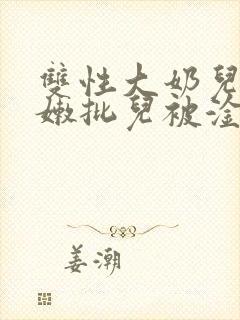 雙性大奶兒
嫩批兒被淦
姜潮